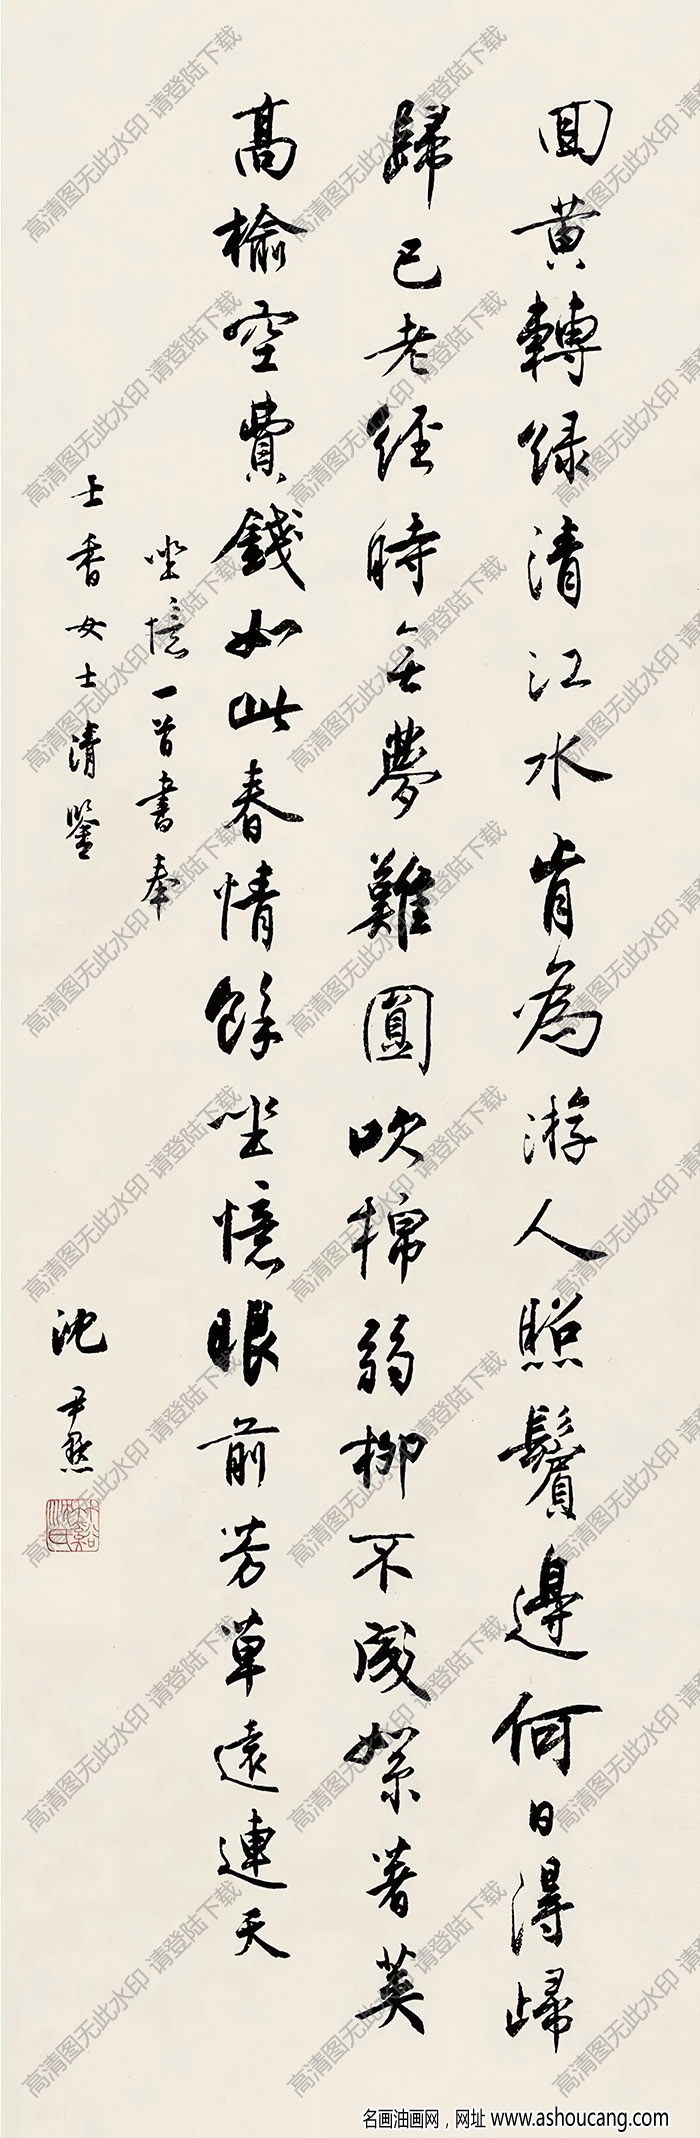 回黄轉緑清江水肯為游人照鬢邊何日得歸
歸已老經時無夢難圓吹棉弱柳不成絮著莢
高榆空費錢如此春情餘坐憶眼前芳草遠連天
坐憶一首書奉
士香女士清鑒
沈尹默
高清图无此水印 请登陆下载
名画油画网，网址 www.ashoucang.com